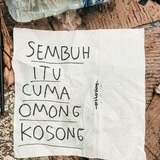 SEMBUH
ITU
CUMA
OMONG
KOSONG